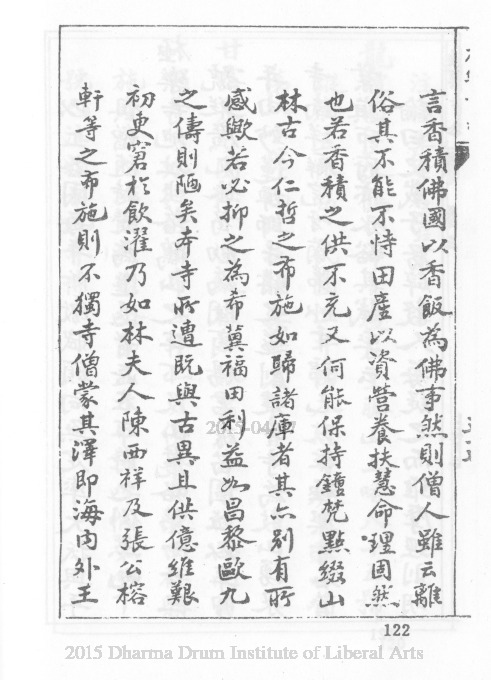 言香積佛國以香飯為佛事然則僧人雖云離
俗其不能不恃田產以資營養扶慧命理固然
也若香積之供不充又何能保持鐘梵點綴山
林古今仁哲之布施如歸諸庫者其亦別有所
感歟若必抑之為希冀福田利益如昌黎歐九
之儔則陋矣本寺所遭既與古異且供億維艱
初更窘於飲濯乃如林夫人陳西祥及張公榕
軒等之布施則不獨寺僧蒙其澤即海內外主
122
2015 Dharma Drum Institute of Liberal Arts